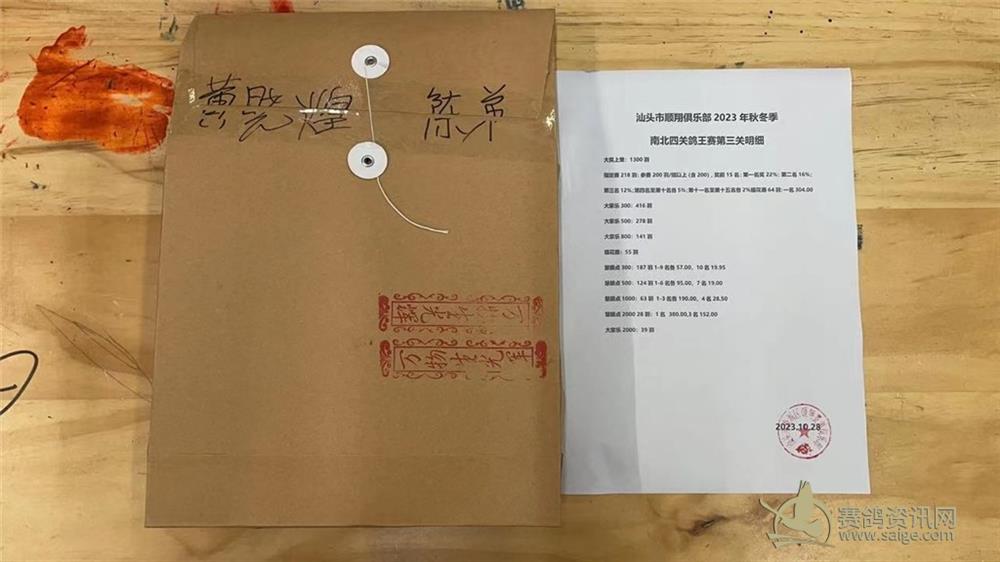 汕头市顺翔俱乐部 2023 年秋冬季
南北四关鸽王赛第三关明细
大奖上笼：1300 羽
指定赛 218 羽；参赛 200 羽/组以上 (含 200)，奖前 15 名；第一名奖 22%；第二名 16%；
第三名 12%;第四名至第十名各 5%; 第十一名至第十五名各 2%插花赛 64 羽: 一名 304.00
大家乐 300：416 羽
大家乐 500：278 羽
大家乐 800：141 羽
插花赛：55 羽
慧眼点 300：187 羽 1-9 名各 57.00，10 名 19.95
慧眼点 500：124 羽 1-6 名各 95.00，7 名 19.00
慧眼点 1000：63 羽 1-3 名各 190.00，4 名 28.50
慧眼点 2000 28 羽：1 名 380.00,3 名 152.00
大家乐 2000：39 羽
2023.10.28
万物
赛鸽资讯网
www.saige.com